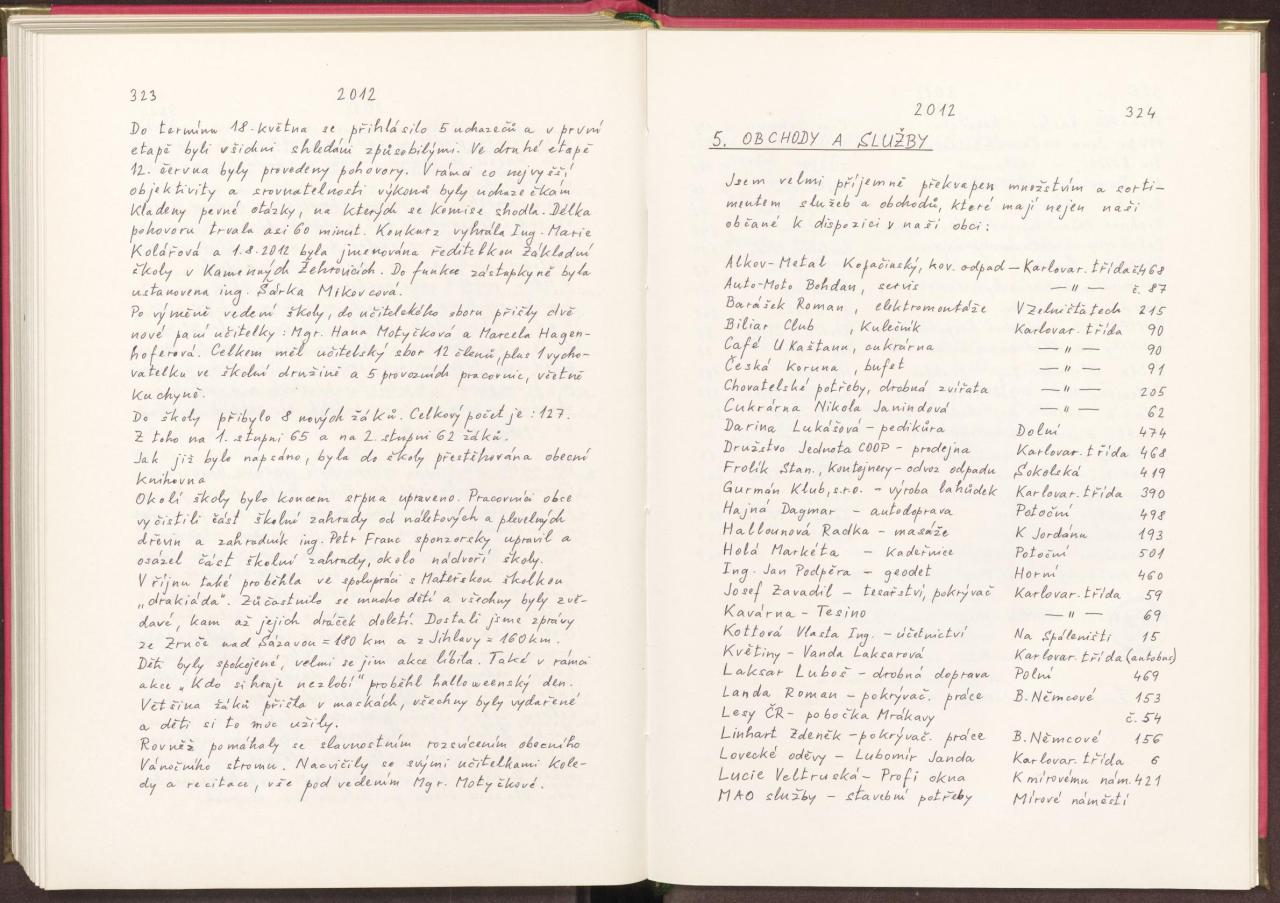 323
2012
Do termínu 18. května se přihlásilo 5 uchazečů a v první
etapě byli všichni shledáni způsobilými. Ve druhé etapě
12. června byly provedeny pohovory. V rámci co nejvyšší
objektivity a srovnatelnosti výkonů byly uchazečkám
kladeny pevné otázky, na kterých se komise shodla. Délka
pohovoru trvala asi 60 minut. Konkurz vyhrála Ing. Marie
Kolářová a 1.8.2012 byla jmenována ředitelkou Základní
školy v Kamenných Žehrovicích. Do funkce zástupkyně byla
ustanovena ing. Šárka Mikovcová.
Po výměně vedení školy, do učitelského sboru přišly dvě
nové paní učitelky: Mgr. Hana Motyčková a Marcela Hagen-
hoferová. Celkem měl učitelský sbor 12 členů, plus 1 vycho-
vatelku ve školní družině a 5 provozních pracovnic, včetně
kuchyně.
Do školy přibylo 8 nových žáků. Celkový počet je: 127.
Z toho na 1. stupni 65 a na 2. stupni 62 žáků.
Jak již bylo napsáno, byla do školy přestěhována obecní
knihovna
Okolí školy bylo koncem srpna upraveno. Pracovníci obce
vyčistili část školní zahrady od náletových a plevelných
dřevin a zahradník ing. Petr Franc sponzorsky upravil a
osázel část školní zahrady, okolo nádvoří školy.
V říjnu také proběhla ve spolupráci s Mateřskou školkou
„drakiáda". Zúčastnilo se mnoho dětí a všechny byly zvě-
davé, kam až jejich dráček doletí. Dostali jsme zprávy
ze Zruče nad Sázavou = 180 km a z Jihlavy = 160 km.
Děti byly spokojené, velmi se jim akce líbila. Také v rámci
akce „Kdo si hraje nezlobí" proběhl halloweenský den.
Většina žáků přišla v maskách, všechny byly vydařené
a děti si to moc užily.
Rovněž pomáhaly se slavnostním rozsvícením obecního
Vánočního stromu. Nacvičily se svými učitelkami kole-
dy a recitace, vše pod vedením Mgr. Motyčkové.
2012
324
5. OBCHODY A SLUŽBY
Jsem velmi příjemně překvapen množstvím a sorti-
mentem služeb a obchodů, které mají nejen naši
občané k dispozici v naší obci:
Alkov-Metal Kopačinský, kov. odpad – Karlovar. třída č. 468
Auto-Moto Bohdan, servis — " — č. 87
Barášek Roman, elektromontáže V Zelništatech 215
Biliar Club , Kulečník Karlovar. třída 90
Café U Kaštanu, cukrárna — " — 90
Česká Koruna, bufet — " — 91
Chovatelské potřeby, drobná zvířata — " — 205
Cukrárna Nikola Janindová — " — 62
Darina Lukášová – pedikúra Dolní 474
Družstvo Jednota COOP – prodejna Karlovar. třída 468
Frolík Stan., kontejnery – odvoz odpadu Sokolská 419
Gurmán Klub, s.r.o. – výroba lahůdek Karlovar. třída 390
Hajná Dagmar – autodoprava Potoční 498
Hallounová Radka – masáže K Jordánu 193
Holá Markéta – kadeřnice Potoční 501
Ing. Jan Podpěra – geodet Horní 460
Josef Zavadil – tesařství, pokrývač Karlovar. třída 59
Kavárna – Tesino — " — 69
Kottová Vlasta Ing. – účetnictví Na Spáleništi 15
Květiny – Vanda Laksarová Karlovar. třída (autobus)
Laksar Luboš – drobná doprava Polní 469
Landa Roman – pokrývač. práce B. Němcové 153
Lesy ČR – pobočka Mrákavy č. 54
Linhart Zdeněk – pokrývač. práce B. Němcové 156
Lovecké oděvy – Lubomír Janda Karlovar. třída 6
Lucie Veltruská – Profi okna K mírovému nám. 421
MAO služby – stavební potřeby Mírové náměstí